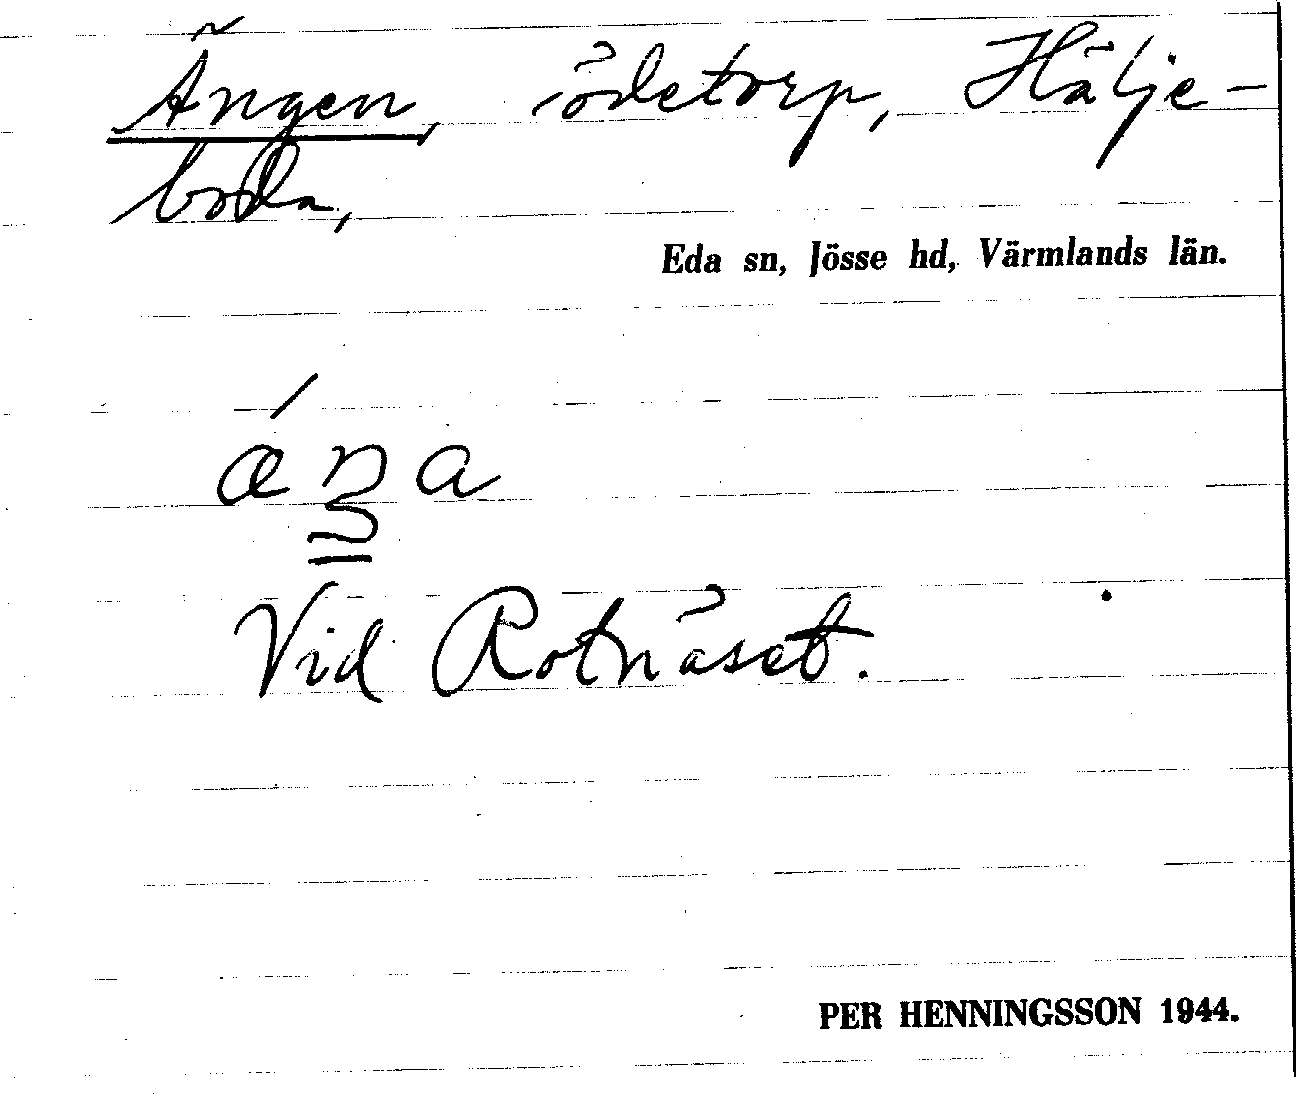 Ängen, ödetorp, Hälje-
boda,
Eda sn, Jösse hd, Värmlands län.
Vid Rotnäset.
PER HENNINGSSON 1944.